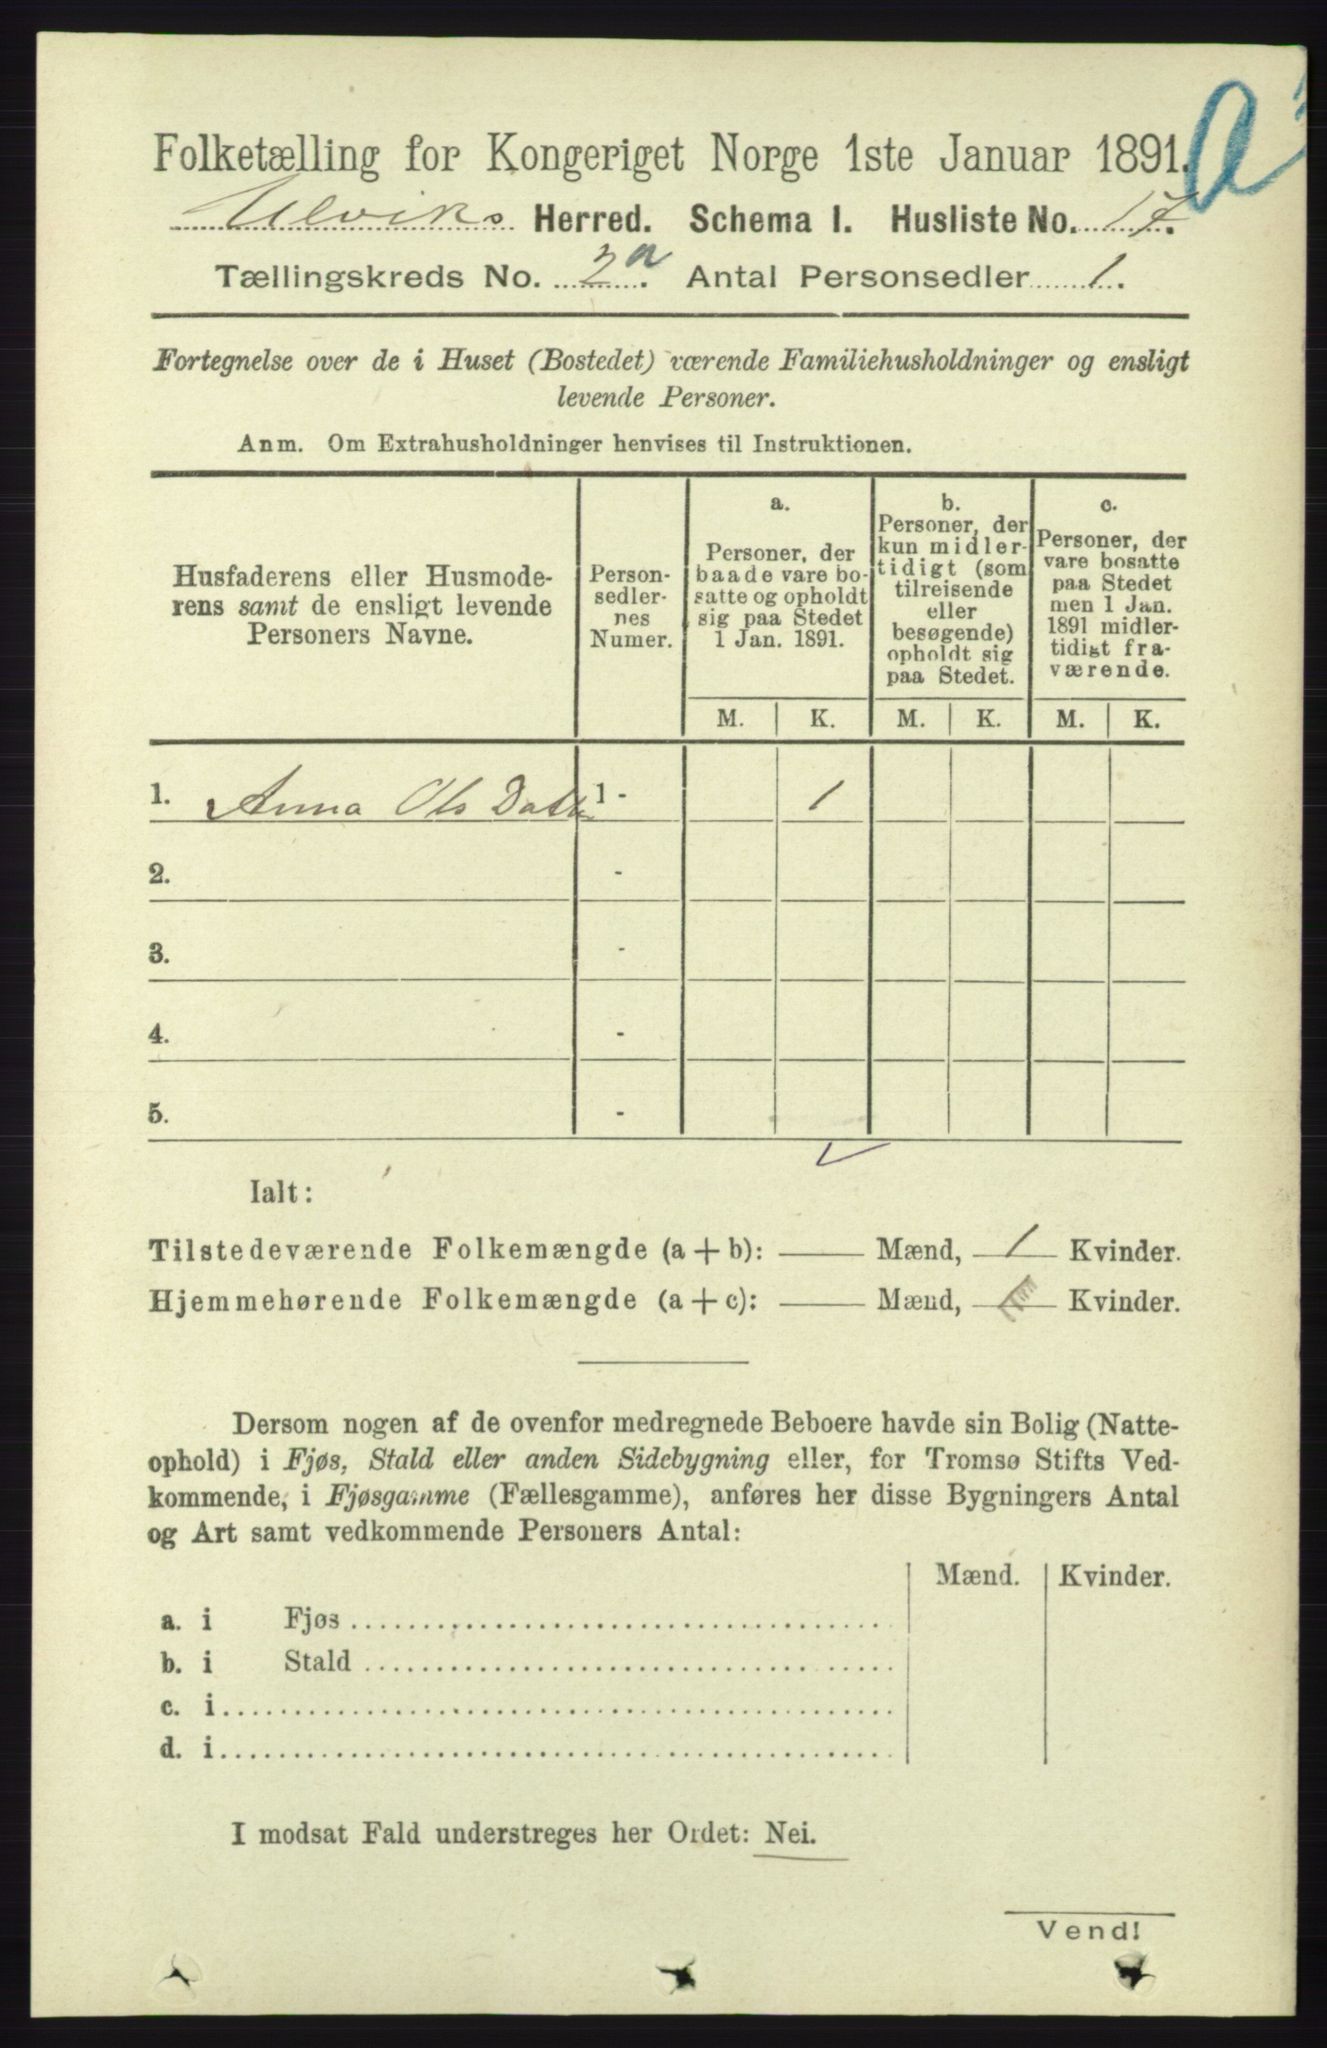 Folketælling for Kongeriget Norge 1ste Januar 1891.
Ulviks Herred. Schema I. Husliste No. 17.
Tællingskreds No. 2a. Antal Personsedler 1.
Fortegnelse over de i Huset (Bostedet) værende Familiehusholdninger og ensligt
levende Personer.
Anm. Om Extrahusholdninger henvises til Instruktionen.
Husfaderens eller Husmode-
rens samt de ensligt levende
Personers Navne.
Person-
sedler-
nes
Numer.
a.
Personer, der
baade vare bo-
satte og opholdt
sig paa Stedet
1 Jan. 1891.
b.
Personer, der
kun midler-
tidigt (som
tilreisende
eller
besøgende)
opholdt sig
paa Stedet.
c.
Personer, der
vare bosatte
paa Stedet
men 1 Jan.
1891 midler-
tidigt fra-
værende.
M. K. M. K. M. K.
1. Anna Ols Datter 1 - 1
2. -
3. -
4. -
5. -
Ialt:
Tilstedeværende Folkemængde (a + b): Mænd, 1 Kvinder.
Hjemmehørende Folkemængde (a + c): Mænd, Kvinder.
Dersom nogen af de ovenfor medregnede Beboere havde sin Bolig (Natte-
ophold) i Fjøs, Stald eller anden Sidebygning eller, for Tromsø Stifts Ved-
kommende, i Fjøsgamme (Fællesgamme), anføres her disse Bygningers Antal
og Art samt vedkommende Personers Antal:
Mænd. Kvinder.
a. i Fjøs
b. i Stald
c. i
d. i
I modsat Fald understreges her Ordet: Nei.
Vend!